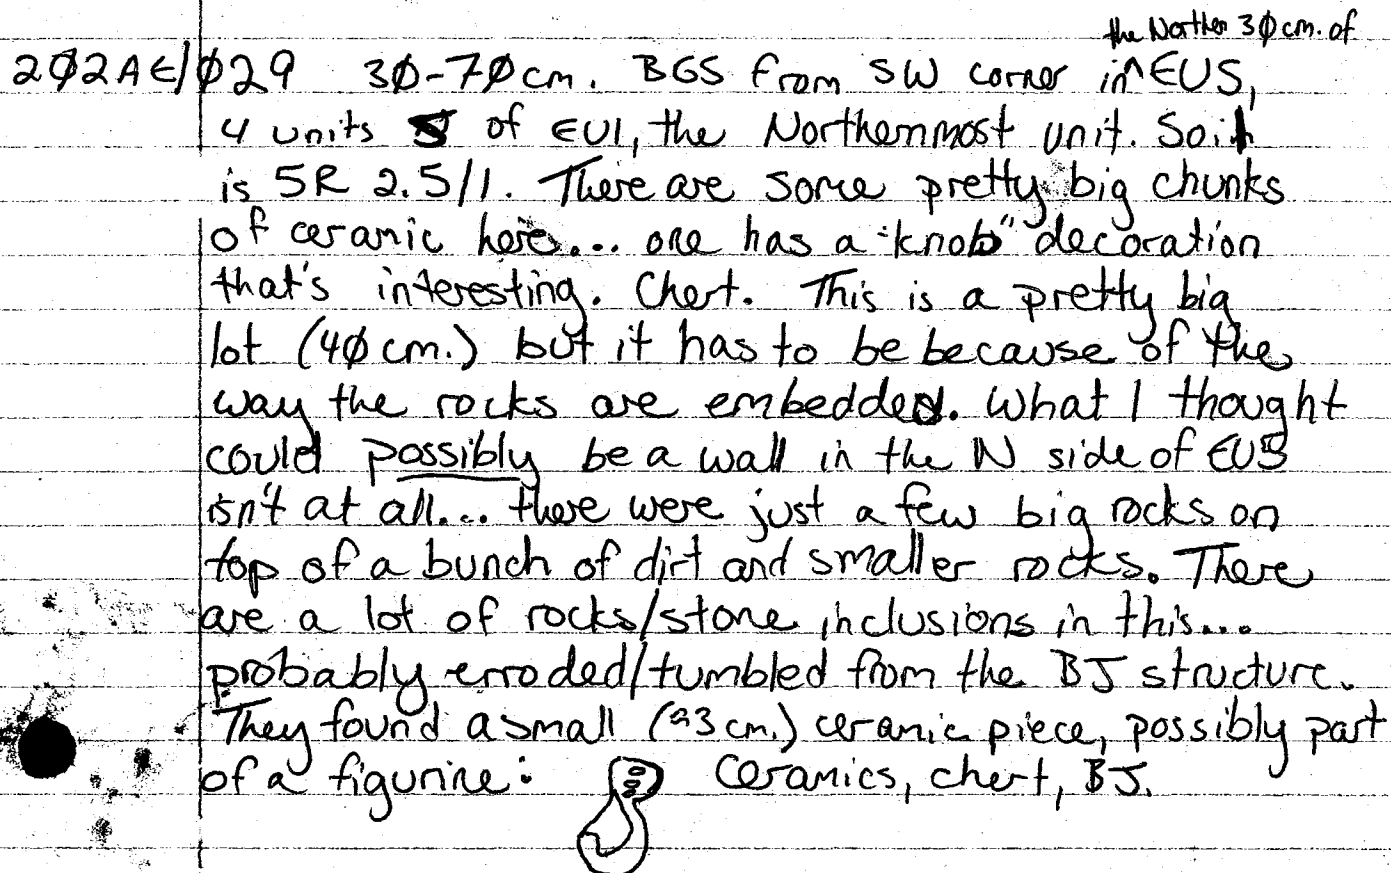 the Norther 3Øcm. of
2Ø2AE/Ø29 3Ø-7Øcm. BGS from SW corner in^EU5,
4 units S of EU1, the Northernmost unit. Soil
is 5R 2.5/1. There are some pretty big chunks
of ceramic here... one has a "knob" decoration
that's interesting. Chert. This is a pretty big
lot (4Øcm.) but it has to be because of the
way the rocks are embedded. What I thought
could possibly be a wall in the N side of EU5
isn't at all... there were just a few big rocks on
top of a bunch of dirt and smaller rocks. There
are a lot of rocks/stone inclusions in this...
probably erroded/tumbled from the BJ structure.
They found a small (≈3cm.) ceramic piece, possibly part
of a figurine: Ceramics, chert, BJ.